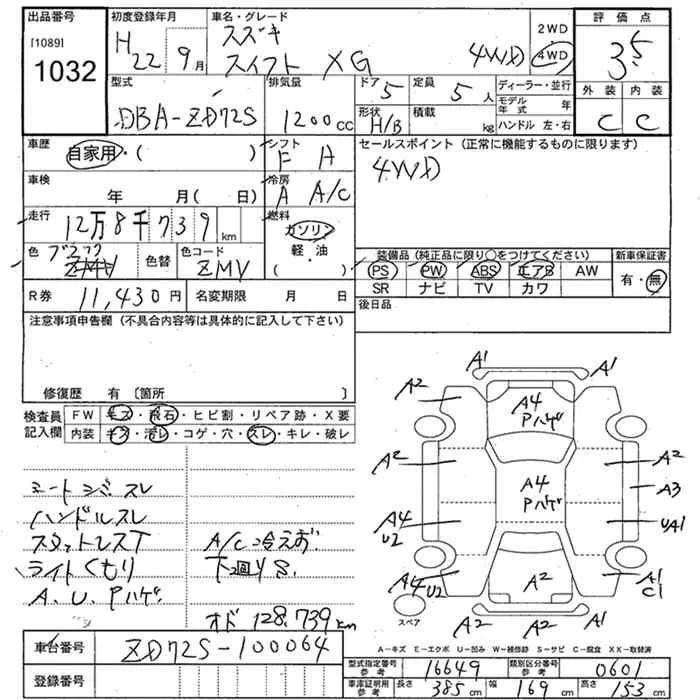 出品番号
[1089]
1032
初度登録年月
H22 9月
車名・グレード
スズキ
スイフト XG 4WD
2WD
4WD
評価点
3.5
外装 内装
C C
型式
DBA-ZD72S
排気量
1200cc
ドア
5
定員
5人
形状
H/B
積載
kg
ディーラー・並行
モデル年式 年
ハンドル 左・右
車歴
自家用・( )
シフト
F A
セールスポイント (正常に機能するものに限ります)
4WD
車検
年 月( 日)
冷房
A A/C
走行
12万8千739km
燃料
ガソリン
軽・油
( )
色
ブラック
ZMV
色替
色コード
ZMV
装備品(純正品に限り○をつけてください)
PS PW ABS エアB AW
SR ナビ TV カワ
新車保証書
有・無
R券 11,430円
名変期限 月 日
後日品
注意事項申告欄(不具合内容等は具体的に記入して下さい)
修復歴 有〔箇所 〕
検査員記入欄
FW キズ・飛石・ヒビ割・リペア跡・X要
内装 キズ・汚レ・コゲ・穴・スレ・キレ・破レ
シートシミスレ
ハンドルスレ
スタットレスT
ライトくもり
A、U、Pハゲ
A/C冷えず
下回りS
オド 128,739km
A1
A1
A2
A4
Pハゲ
A1
A2
A2
A4
Pハゲ
A3
A4
U2
UA1
A4U2
A2
A1
C1
A2
A2
スペア
A-キズ E-エクボ U-凹み W-補修跡 S-サビ C-腐食 XX-取替済
車台番号
ZD72S-100064
登録番号
型式指定番号
参考
16649
類別区分番号
参考
0601
車庫証明用
参考
長さ 385cm 幅 169cm 高さ 153cm